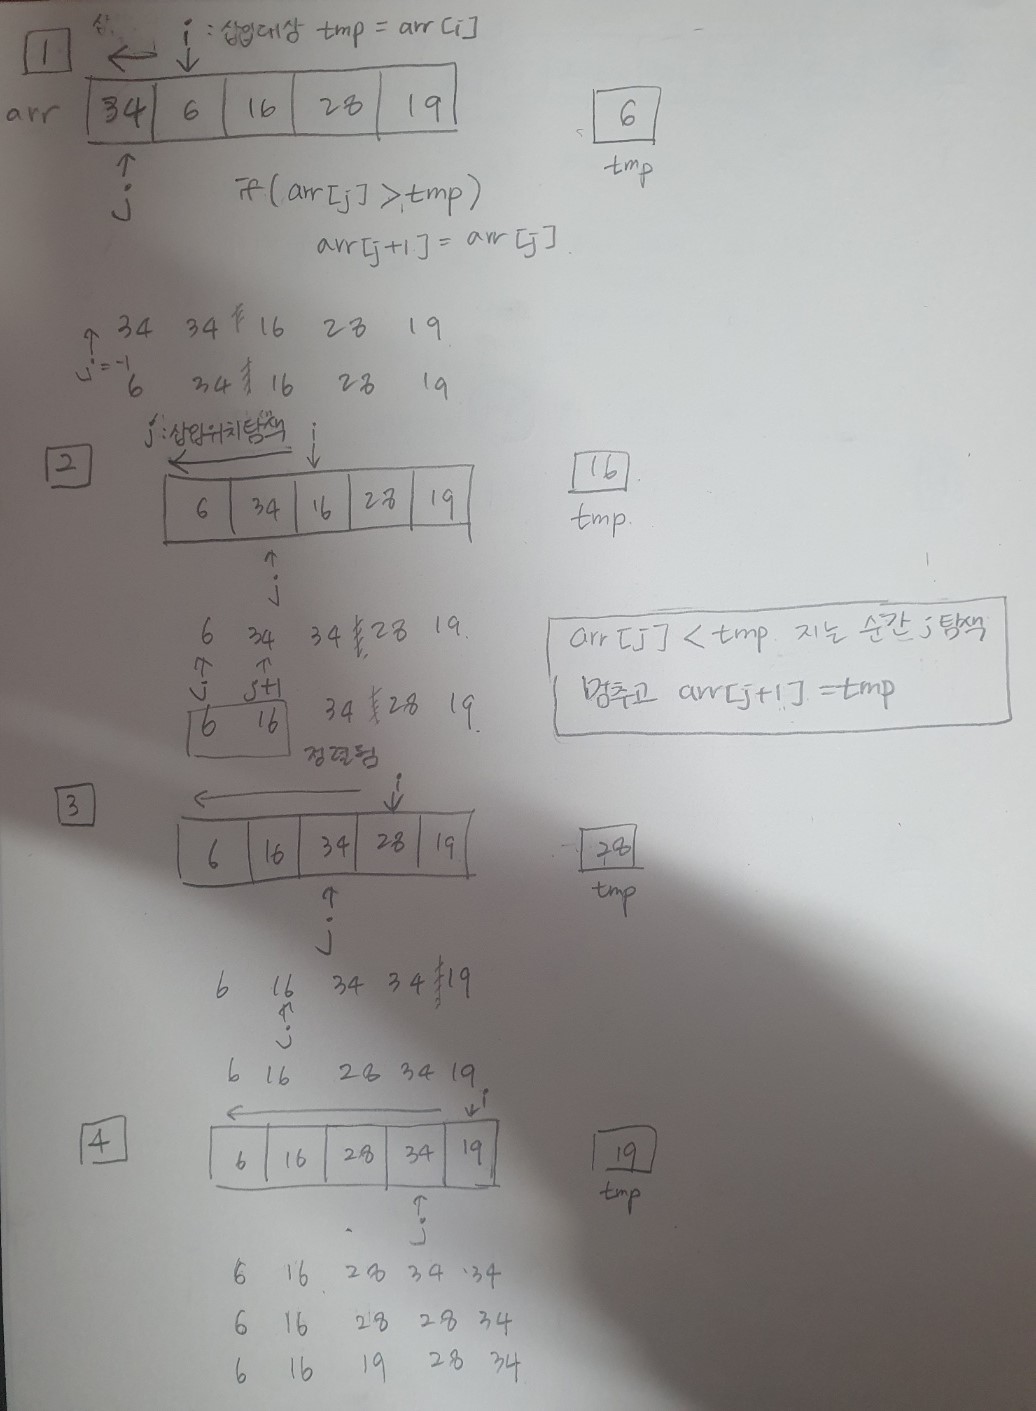 삽
i : 삽입대상 tmp = arr[i]
1
arr 34 6 16 28 19
6
tmp
j
if(arr[j] > tmp)
arr[j+1] = arr[j]
34 34 16 28 19
j=-1
6 34 16 28 19
j:삽입위치탐색 i
2
6 34 16 28 19
16
tmp.
j
6 34 34 28 19.
j j+1
6 16 34 28 19.
정렬됨
arr[j] < tmp 지는 순간 j탐색
멈추고 arr[j+1] = tmp
i
3
6 16 34 28 19
28
tmp
j
6 16 34 34 19
j
6 16 28 34 19
i
4
6 16 28 34 19
19
tmp
j
6 16 28 34 34
6 16 28 28 34
6 16 19 28 34